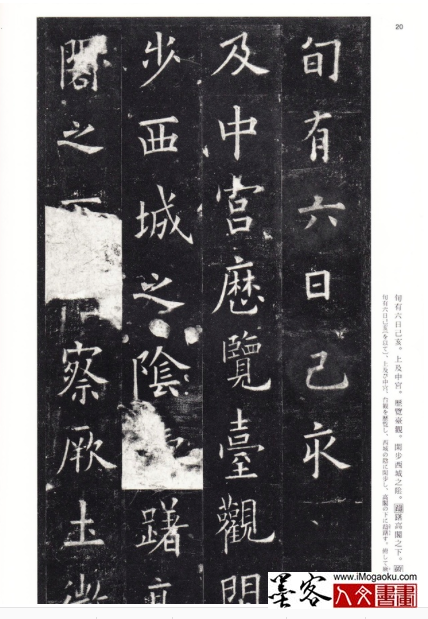 20
旬有六日己亥。上及中宮。歷覽臺觀。閒步西城之陰。躊躇高閣之下。
旬有六日己亥を以て、上、及び中宮、臺觀を歷覽し、西城の陰に閒步し、高閣の下に躊躇す。俯して
旬有六日己亥
及中宮歷覽臺觀閒
步西城之陰躇高
閣之下察厥土微
www.iMogaoku.com
墨客